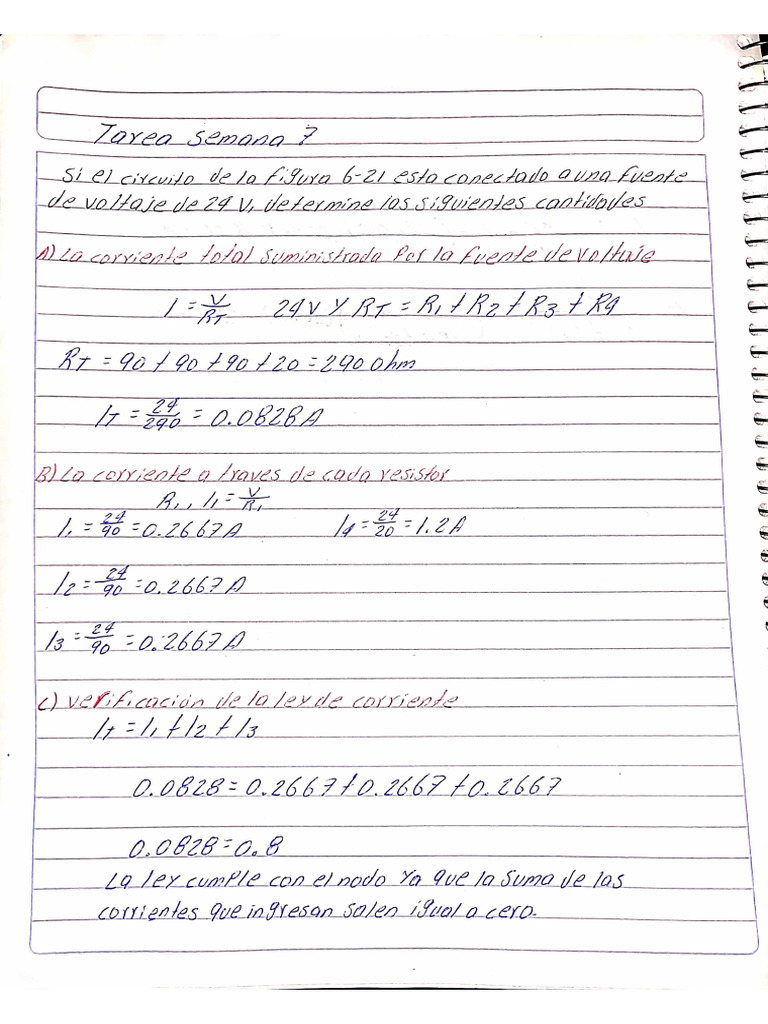 Tarea semana 7
Si el circuito de la figura 6-21 esta conectado a una fuente
de voltaje de 24 V, determine las siguientes cantidades
A) La corriente total suministrada Por la fuente de voltaje
I = V/RT 24V Y RT = R1 + R2 + R3 + R4
RT = 90 + 90 + 90 + 20 = 290 Ohm
IT = 24/290 = 0.0828 A
B) La corriente a traves de cada resistor
R1, I1 = V/R1
I1 = 24/90 = 0.2667 A I4 = 24/20 = 1.2 A
I2 = 24/90 = 0.2667 A
I3 = 24/90 = 0.2667 A
C) verificación de la ley de corriente
IT = I1 + I2 + I3
0.0828 = 0.2667 + 0.2667 + 0.2667
0.0828 = 0.8
La ley cumple con el nodo Ya que la suma de las
corrientes que ingresan salen igual a cero.